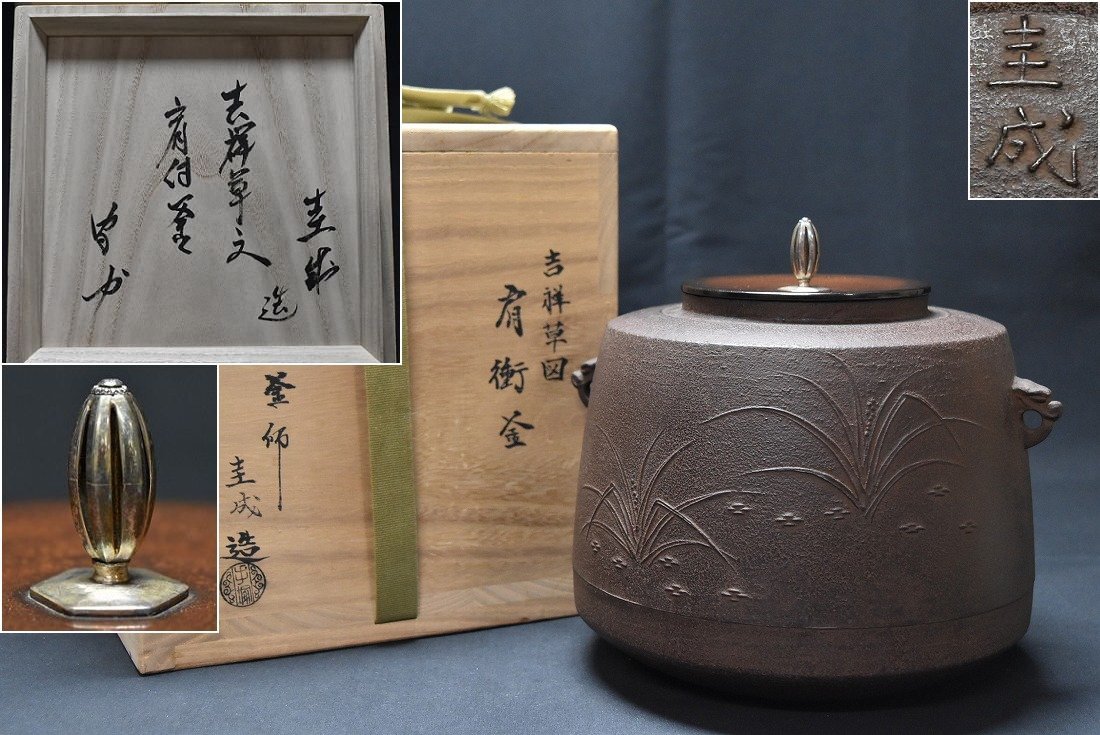 圭成
造
吉祥草文
肩付釜
吉祥草図
肩衝釜
釜師
圭成
造
圭成